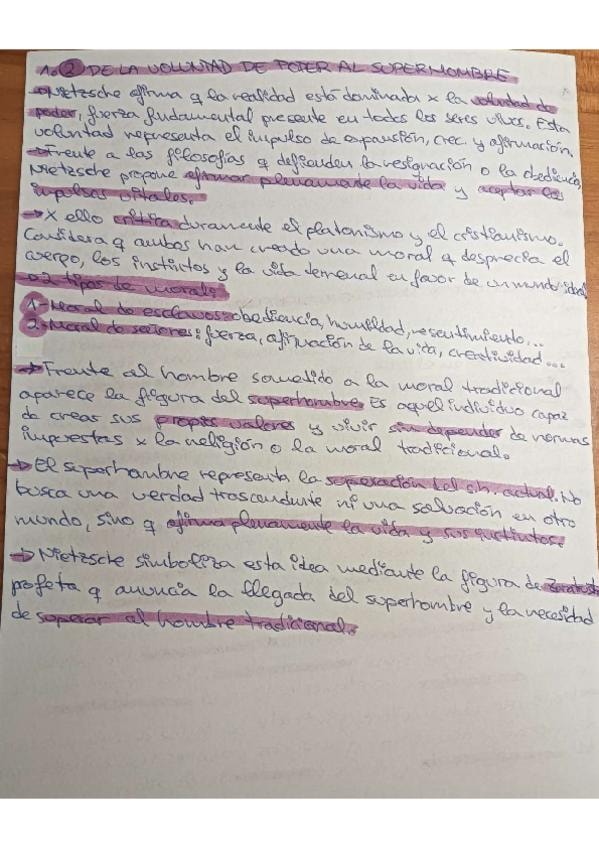 1. 2 DE LA VOLUNTAD DE PODER AL SUPERHOMBRE
→ Nietzsche afirma q la realidad está dominada x la voluntad de
poder, fuerza fundamental presente en todos los seres vivos. Esta
voluntad representa el impulso de expansión, crec. y afirmación.
→ Frente a las filosofías q defienden la resignación o la obediencia,
Nietzsche propone afirmar plenamente la vida y aceptar los
impulsos vitales.
→ X ello critica duramente el platonismo y el cristianismo.
Considera q ambos han creado una moral q desprecia el
cuerpo, los instintos y la vida terrenal en favor de un mundo ideal
→ 2 tipos de moral:
1- Moral de esclavos: obediencia, humildad, resentimiento...
2- Moral de señores: fuerza, afirmación de la vida, creatividad...
→ Frente al hombre sometido a la moral tradicional
aparece la figura del superhombre. Es aquel individuo capaz
de crear sus propios valores y vivir sin depender de normas
impuestas x la religión o la moral tradicional.
→ El superhombre representa la superación del sh. actual. No
busca una verdad trascendente ni una salvación en otro
mundo, sino q afirma plenamente la vida y sus instintos.
→ Nietzsche simboliza esta idea mediante la figura de Zaratust
profeta q anuncia la llegada del superhombre y la necesidad
de superar al hombre tradicional.